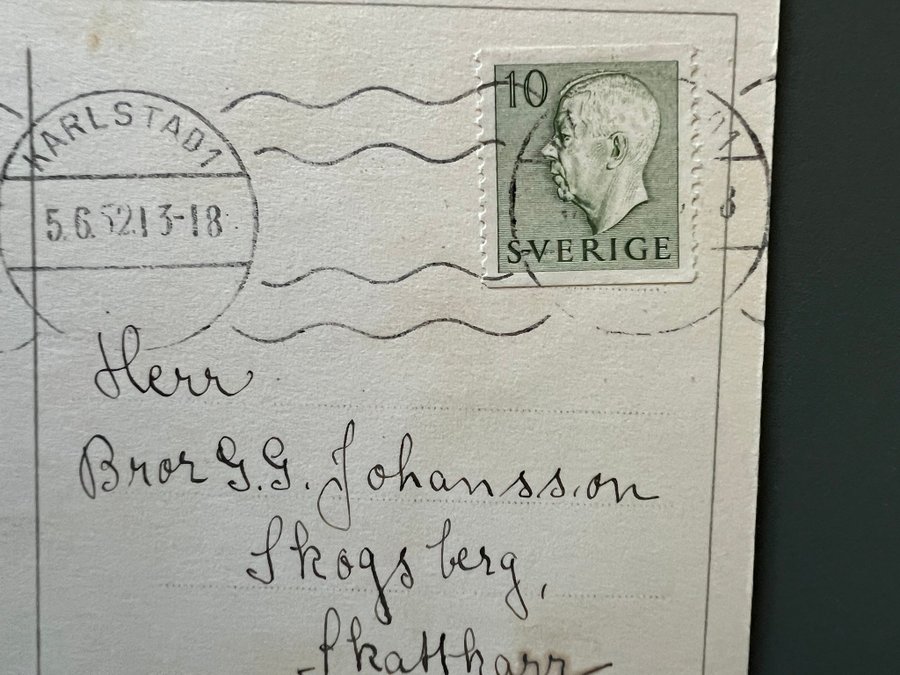 KARLSTAD 1
5.6.52.13-18
10
SVERIGE
Herr
Bror G.G. Johansson
Skogsberg,